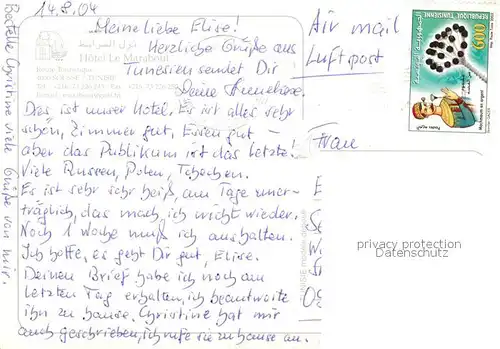 14.8.04
Meine liebe Elise!
Herzliche Grüße aus
Tunesien sendet Dir
Deine
Hôtel Le Marabout
Das ist unser Hotel, Es ist alles sehr
schön, Zimmer gut, Essen gut –
aber das Publikum ist das letzte!
Viele Russen, Polen, Tschechen.
Es ist sehr sehr heiß, am Tage uner-
träglich, das mach ich nicht wieder.
Noch 1 Woche muß ich aushalten.
Ich hoffe, es geht Dir gut, Elise.
Deinen Brief habe ich noch am
letzten Tag erhalten, ich beantworte
ihn zu hause. Christine hat mir
auch geschrieben, ich rufe sie zuhause an.
Bestelle Christine viele Grüße von mir.
Air mail
Luftpost
Frau
REPUBLIQUE TUNISIENNE
600
privacy protection
Datenschutz